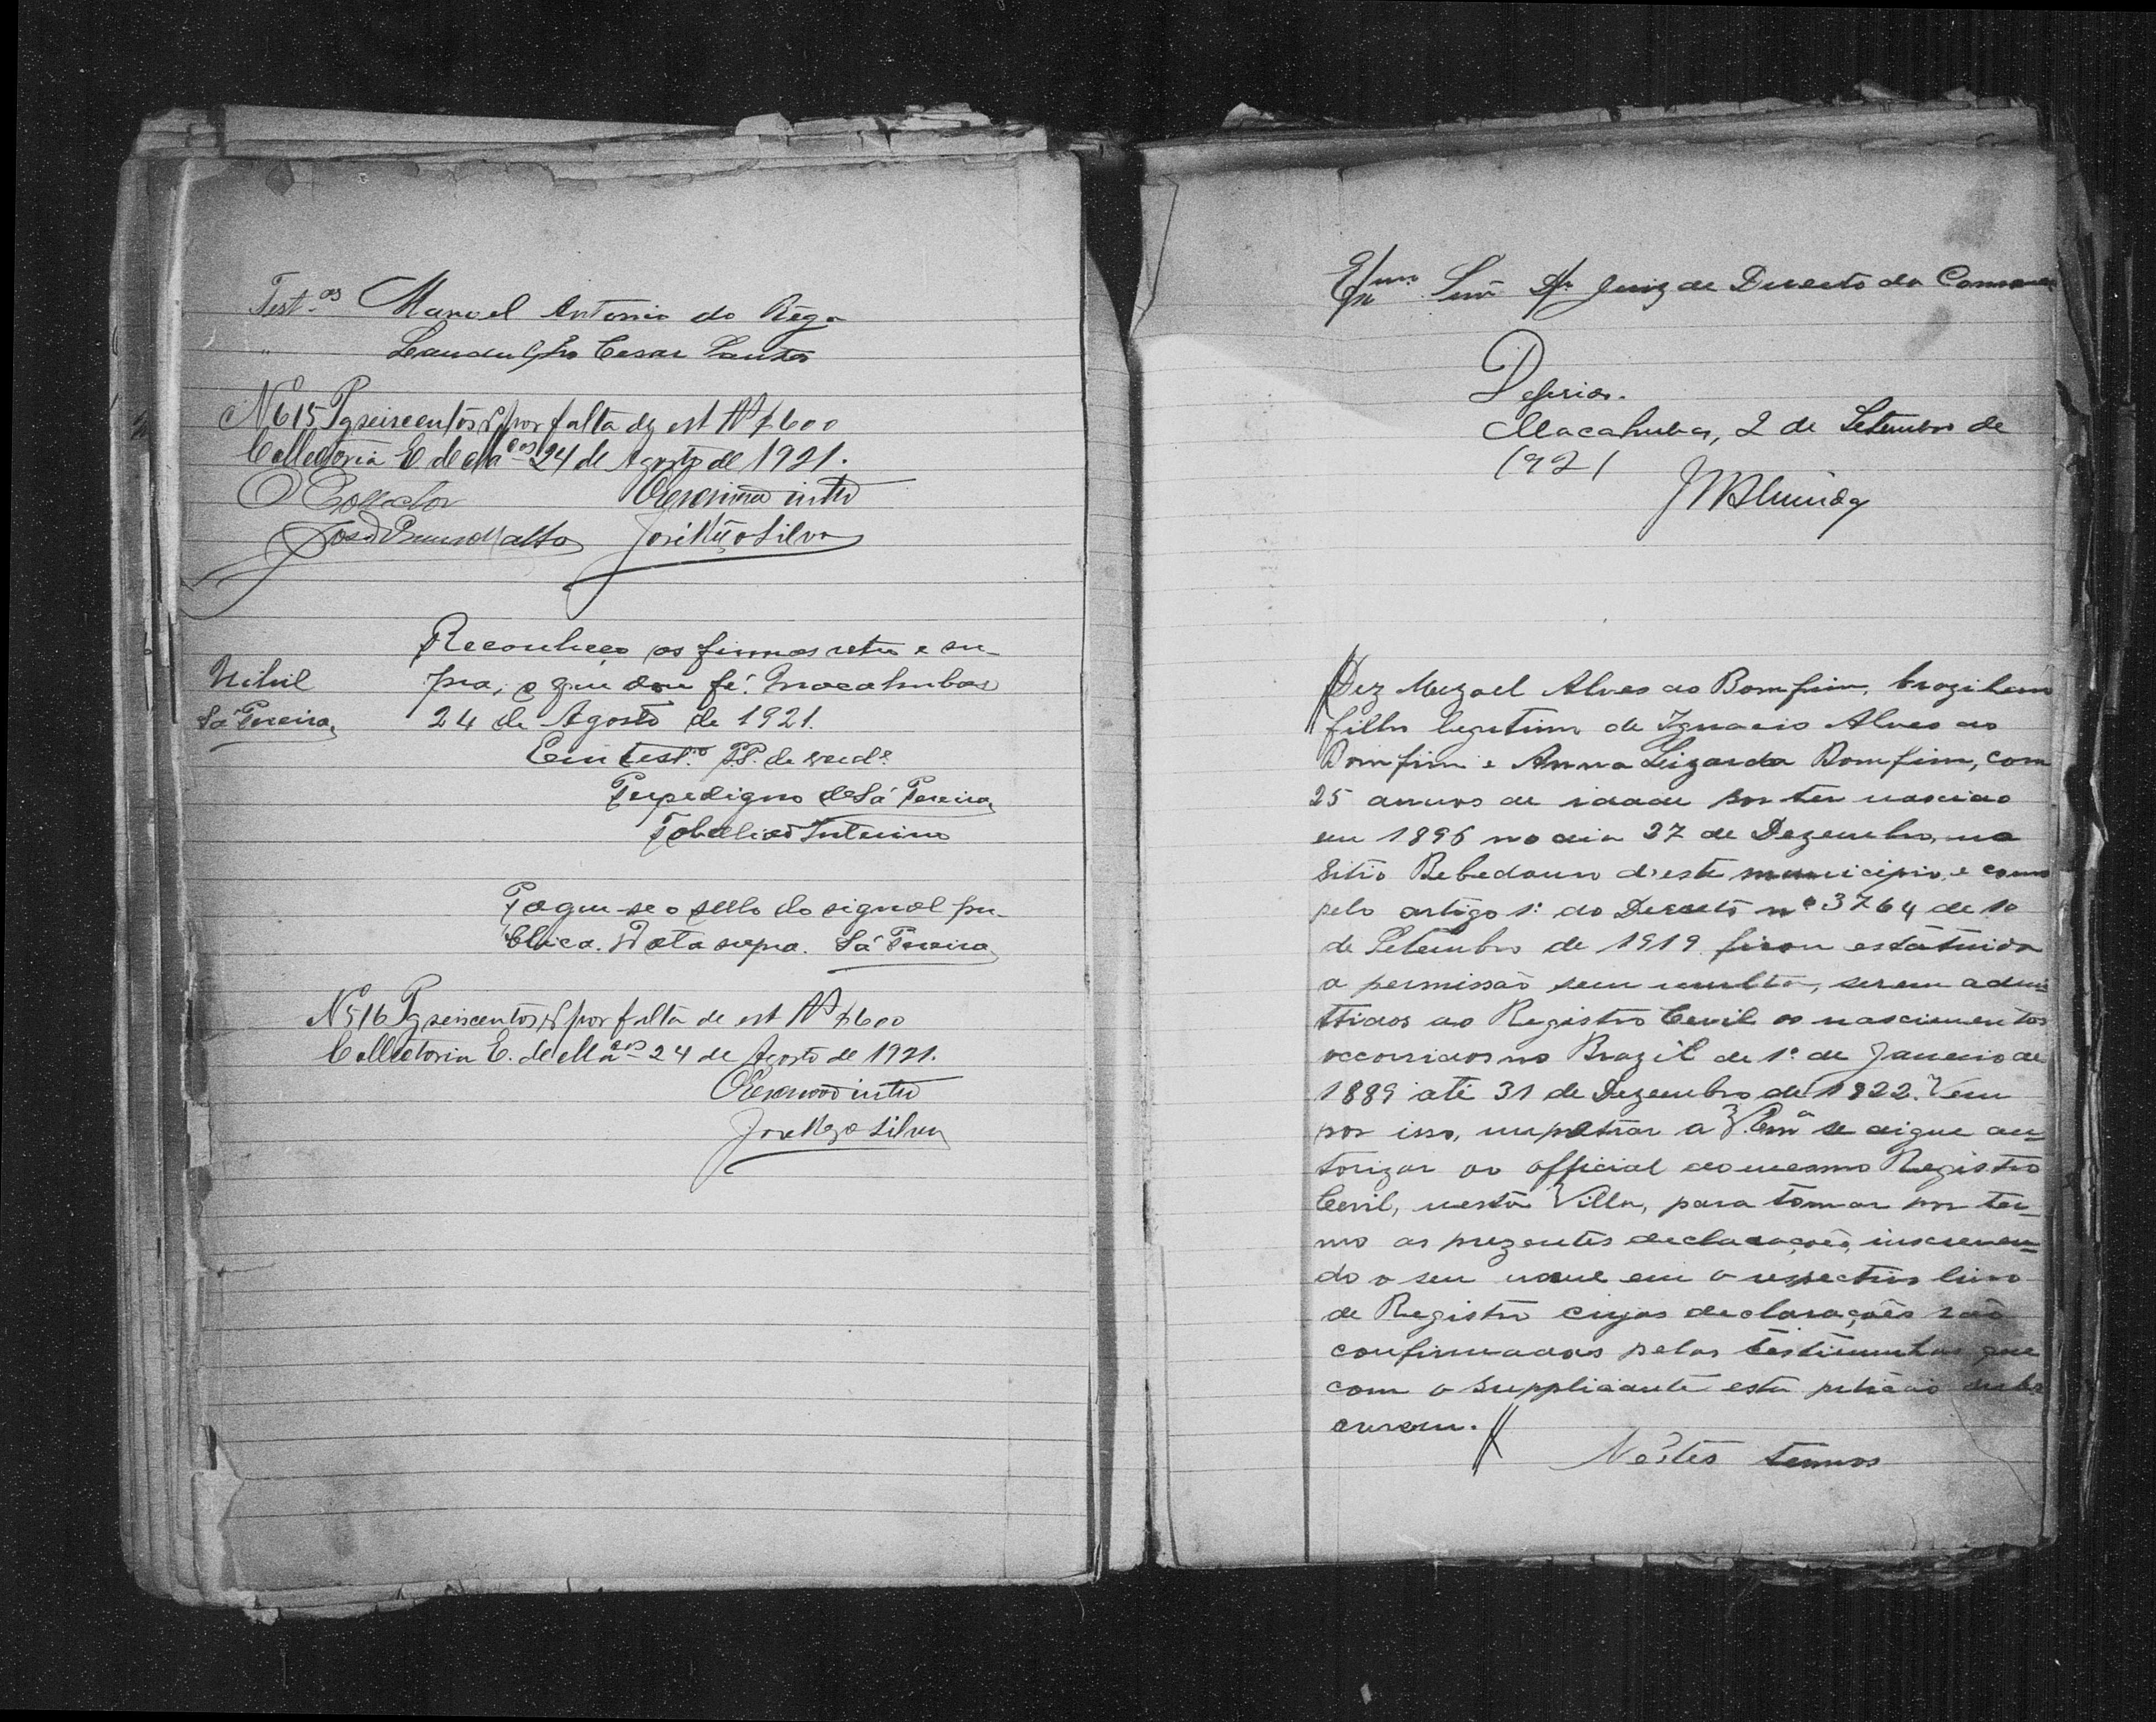 Test.as Manoel Antonio do Rego
" Landulpho Cesar Santos
N 615 Pg seiscentos rs por falta de est Rs $600
Collectoria E de Macas 24 de Agosto de 1921.
O Collector Oescrivão intro
José Silva
Reconheço as firmas retro e su-
pra, o que dou fé. Macahubas
24 de Agosto de 1921.
Nihil
Sá Pereira
Em test.o P.P. de verd.e
Perpedigno de Sá Pereira
Tabellião Interino
Pague-se o sello do signal pu-
blico. Data supra. Sá Pereira
N 516 Pg seiscentos rs por falta de est Rs $600
Collectoria E. de Macas 24 de Agosto de 1921.
Oescrivão intro
José Silva
Exmo Snr Dr Juiz de Direito da Comarca
Deferido.
Macahubas, 2 de Setembro de
1921
Diz Alves do Bomfim, brazileiro
filho legitimo de Ignacio Alves do
Bomfim e Anna Lizarda Bomfim, com
25 annos de idade por ter nascido
em 1896 no dia 27 de Dezembro, no
Sitio Bebedouro d'este municipio, e como
pelo artigo 1º do Decreto nº 3764 de 10
de Setembro de 1919 ficou estatuida
a permissão sem multa, serem admi-
ttidos ao Registro Cevil os nascimentos
occorridos no Brazil de 1º de Janeiro de
1889 até 31 de Dezembro de 1922. Vem
por isso, impetrar a V. Exª se digne au-
torizar ao official do mesmo Registro
Cevil, nesta Villa, para tomar por ter-
mo as prezentes declarações, inscreven-
do o seu nome em o respectivo livro
de Registro cujas declarações são
confirmadas pelas testimunhas que
com o suppliante esta petição subs
crevem.
Néstes termos